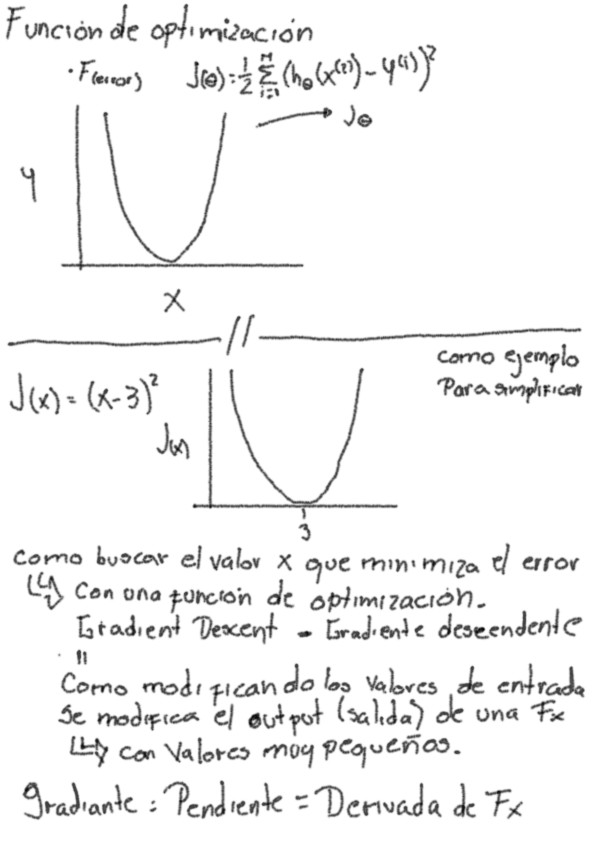 Función de optimización
· F(error) J(θ) = 1/2 Σ i=1 M (hθ(x⁽ⁱ⁾) - y⁽ⁱ⁾)²
Jθ
y
x
//
como ejemplo
Para simplificar
J(x) = (x-3)²
J(x)
3
como buscar el valor x que minimiza el error
Con una función de optimización.
Gradient Descent - Gradiente descendente
"
Como modificando los valores de entrada
se modifica el output (salida) de una Fx
con valores muy pequeños.
gradiante : Pendiente = Derivada de Fx